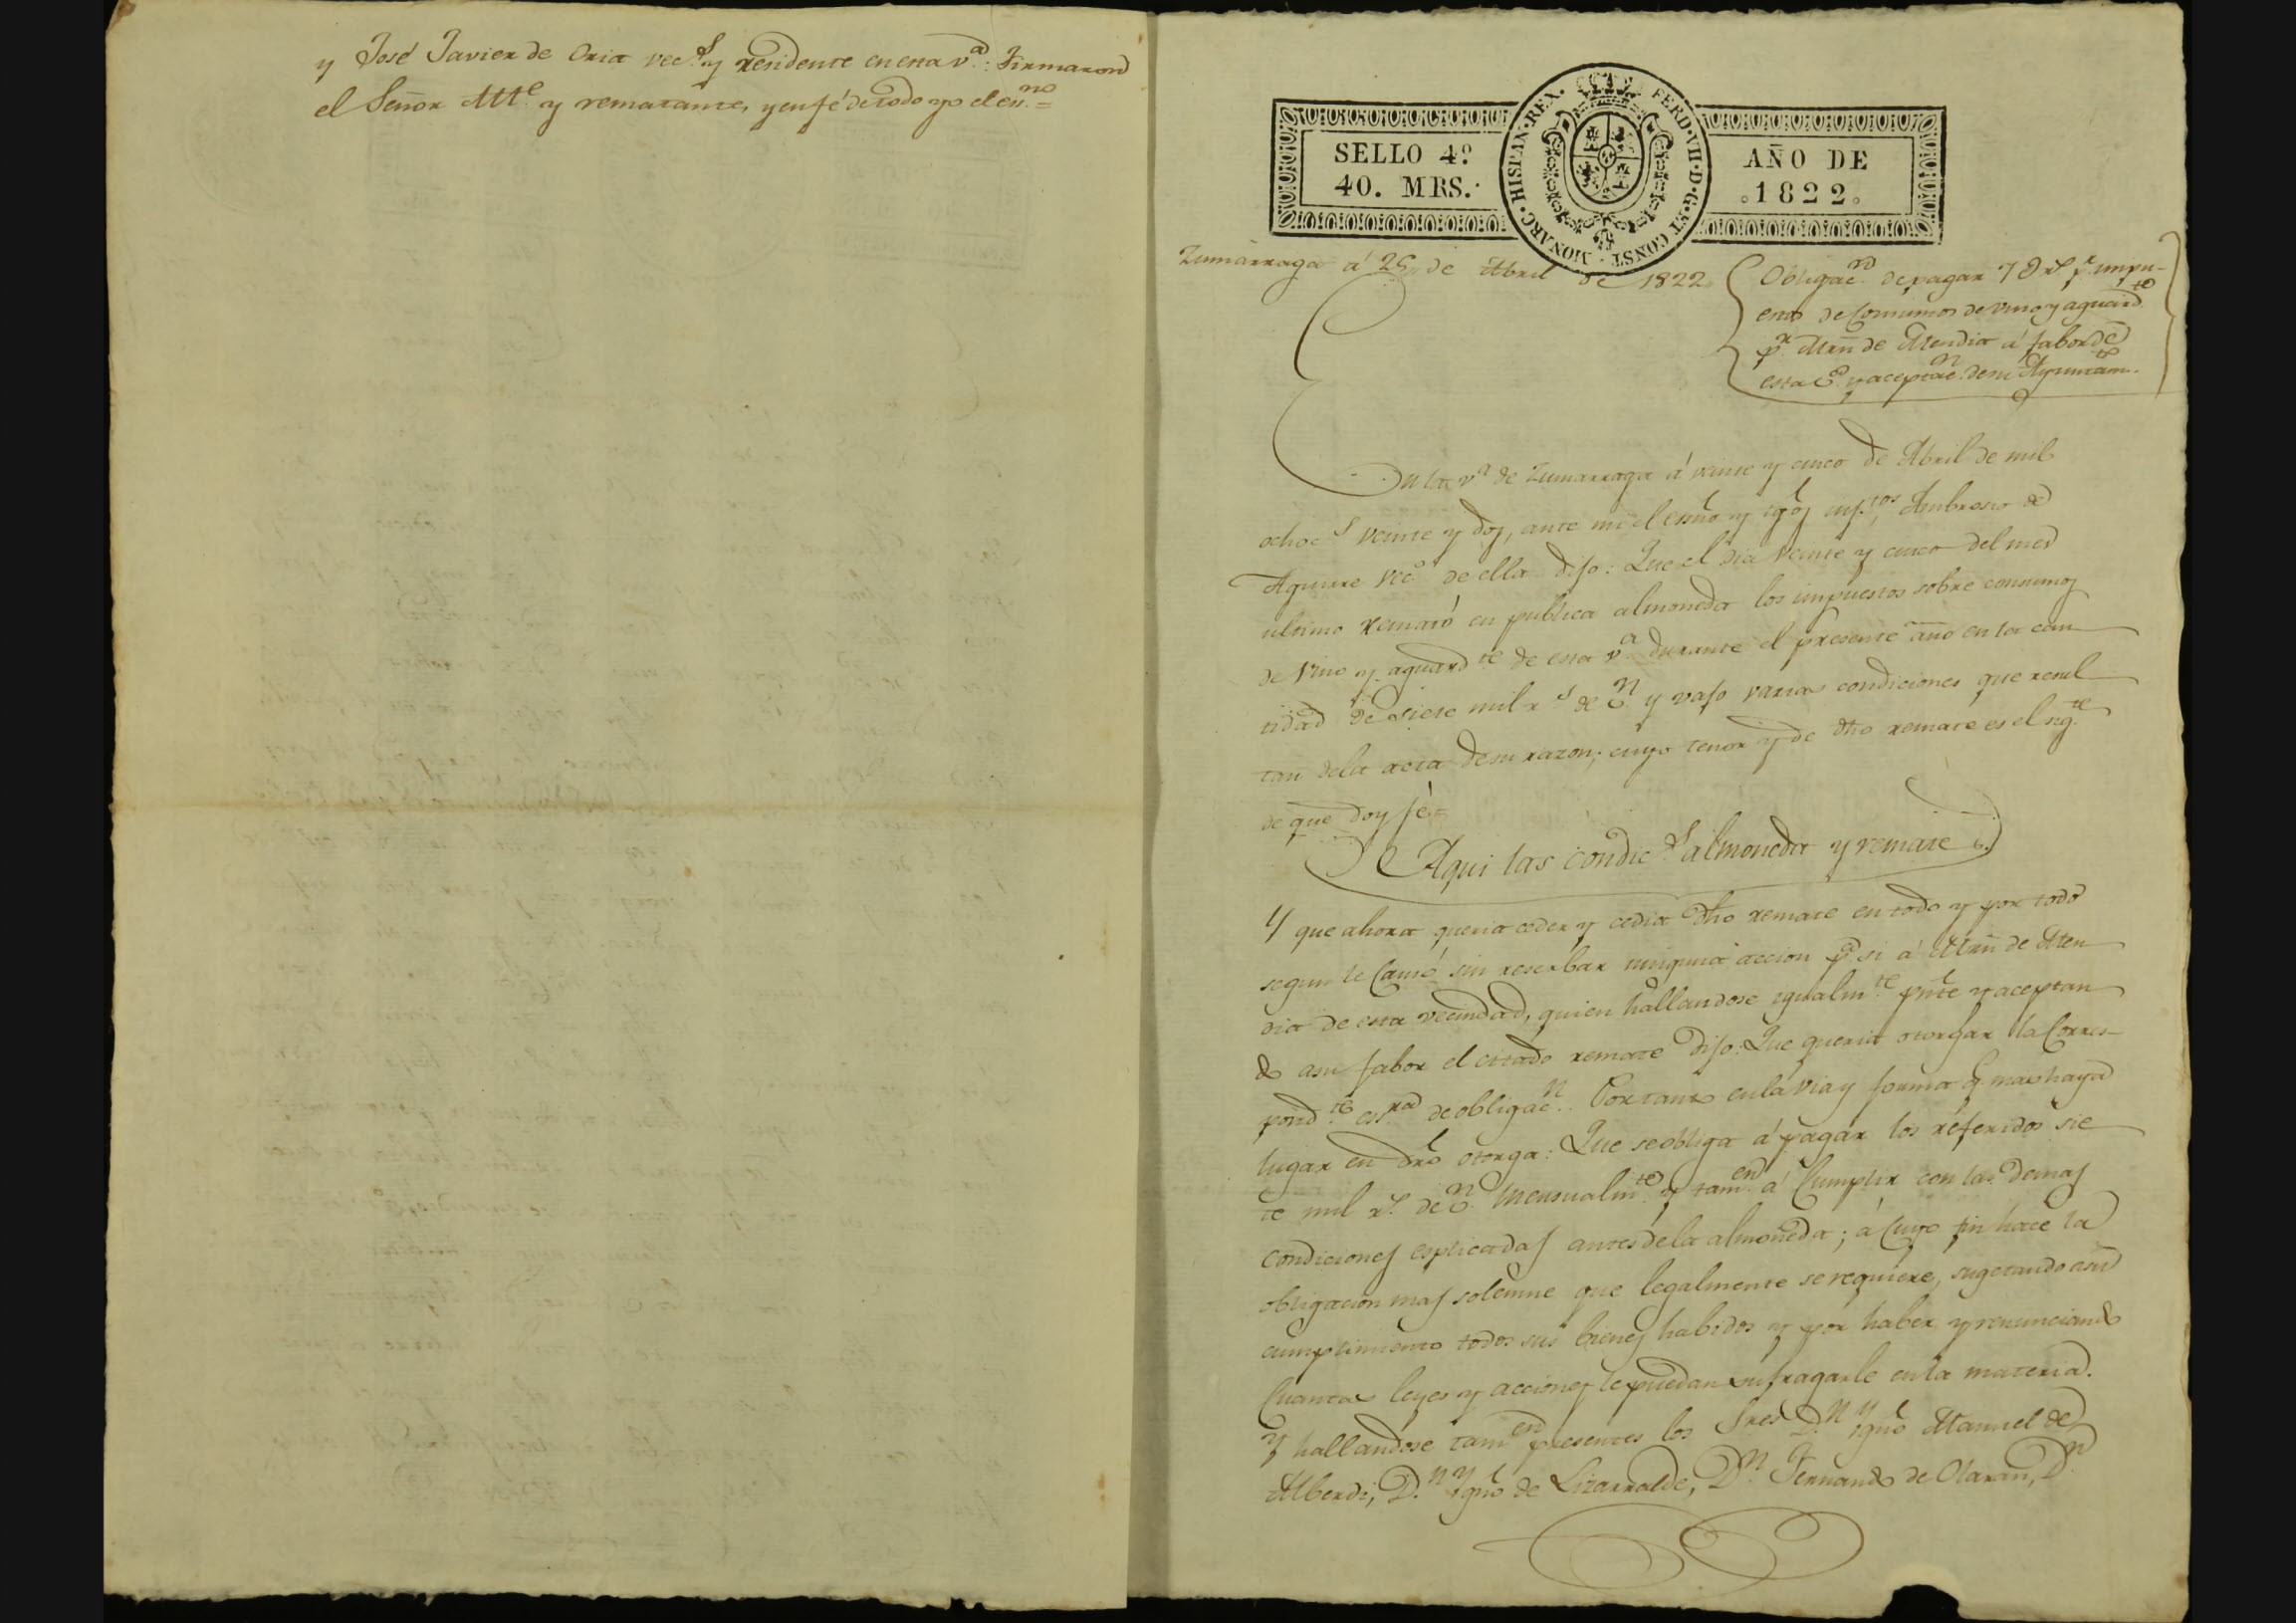 y José Javier de Oria vec.s y residente en esta v.a: Firmaron
el Señor Alt.e y rematante, y en fé de todo yo el en.no =
SELLO 4.o
40. MRS.
MONARC · HISPAN · REX. FERD · VII · D · G · ET CONST ·
AÑO DE
1822
Zumarraga á 25 de Abril de 1822
Obligac.n de pagar 7 D r.s p.r impu-
estos de Consumos de vino y aguard.te
p.r Mrn de Mendia á fabor de
esta v.a y aceptac.n de su Ayuntam.to
En la v.a de Zumarraga á veinte y cinco de Abril de mil
ochoc.s veinte y dos, ante mi el essño y tgos inf.tos Ambrosio de
Aguirre vec.o de ella dijo: Que el dia veinte y cinco del mes
ultimo remató en publica almoneda los impuestos sobre consumos
de vino y aguard.te de esta v.a durante el presente año en la can
tidad de siete mil r.s de v.n y vajo varias condiciones que resul
tan dela acta de su razon; cuyo tenor y de dho remate es el sig.te
de que doy fé =
Aqui las condic.s almoneda y remate
Y que ahora queria ceder y cedia dho remate en todo y por todo
segun le Causó sin reserbar ninguna accion p.a si á Mrn de Men
dia de esta vecindad, quien hallandose igualm.te pnte y aceptan
do asu fabor el citado remate dijo: Que queria otorgar la Corres-
pond.te ess.ra de obligac.n. Por tanto en la via y forma q mas haya
lugar en dro otorga: Que se obliga á pagar los referidos sie
te mil r.s de v.n mensualm.te y tam.en á Cumplir con las demas
condiciones esplicadas antes dela almoneda; á Cuyo fin hace la
obligacion mas solemne que legalmente se requiere, sugetando asu
cumplimiento todos sus bienes habidos y por haber y renunciando
Cuantas leyes y acciones le puedan sufragarle en la materia.
Y hallandose tam.en presentes los Sres D.n Ygno Manuel de
Alberdi, D.n Ygno de Lizarralde, D.n Fernando de Olaran, D.n